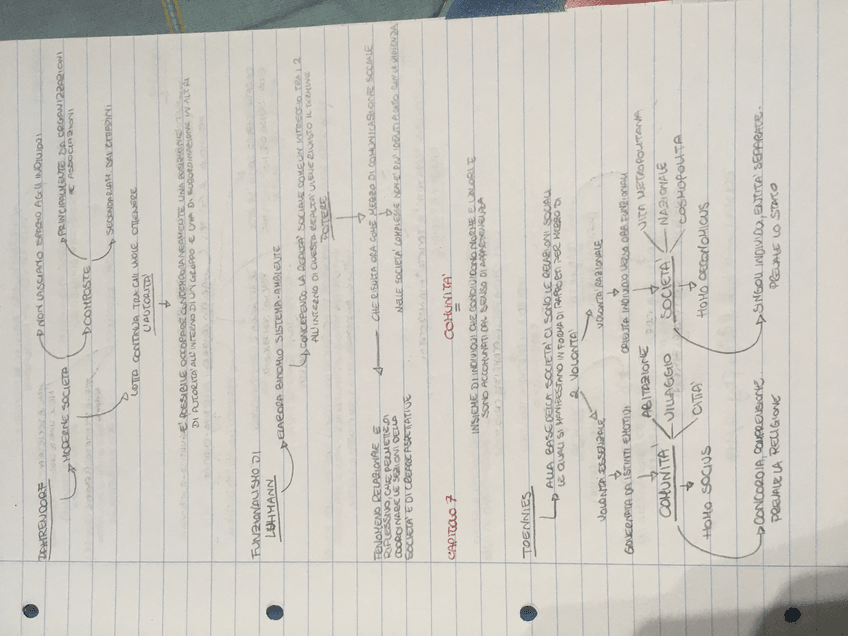 DAHRENDORF
MODERNE SOCIETÀ
NON LASCIANO SPAZIO AGLI INDIVIDUI
COMPOSTE
PRINCIPALMENTE DA ORGANIZZAZIONI
E ASSOCIAZIONI
SECONDARIAM. DAI CITTADINI
LOTTA CONTINUA TRA CHI VUOLE OTTENERE
L'AUTORITÀ
È POSSIBILE OCCUPARE CONTEMPORANEAMENTE UNA POSIZIONE
DI AUTORITÀ ALL'INTERNO DI UN GRUPPO E UNA DI SUBORDINAZIONE IN ALTRI
FUNZIONALISMO DI
LUHMANN
ELABORA BINOMIO SISTEMA-AMBIENTE
CONCEPENDO LA REALTÀ SOCIALE COME UN INTRECCIO TRA I 2
ALL'INTERNO DI QUESTA REALTÀ VIENE GIUNTO IL TERMINE
POTERE
FENOMENO RELAZIONALE E
RIFLESSIVO, CHE PERMETTE DI
COORDINARE LE AZIONI DELLA
SOCIETÀ E DI CREARE ASPETTATIVE
CHE RISULTA ORA COME MEZZO DI COMUNICAZIONE SOCIALE
NELLE SOCIETÀ COMPLESSE NON È PIÙ IDENTIFICATO CON LA VIOLENZA
CAPITOLO 7
COMUNITÀ
=
INSIEME DI INDIVIDUI CHE CONDIVIDONO NORME E VALORI E
SONO ACCOMUNATI DAL SENSO DI APPARTENENZA
TOENNIES
ALLA BASE DELLA SOCIETÀ CI SONO LE RELAZIONI SOCIALI
LE QUALI SI MANIFESTANO IN FORMA DI RAPPORTI PER MEZZO DI
2 VOLONTÀ
VOLONTÀ ESSENZIALE
VOLONTÀ RAZIONALE
GOVERNATA DA ISTINTI EMOTIVI
ORIENTA INDIVIDUO VERSO OBB. FUNZIONALI
COMUNITÀ
ABITAZIONE
VILLAGGIO
CITTÀ
SOCIETÀ
VITA METROPOLITANA
NAZIONALE
COSMOPOLITA
HOMO SOCIUS
HOMO OECONOMICUS
CONCORDIA, COMPRENSIONE
PREVALE LA RELIGIONE
SINGOLI INDIVIDUI, ENTITÀ SEPARATE..
PREVALE LO STATO